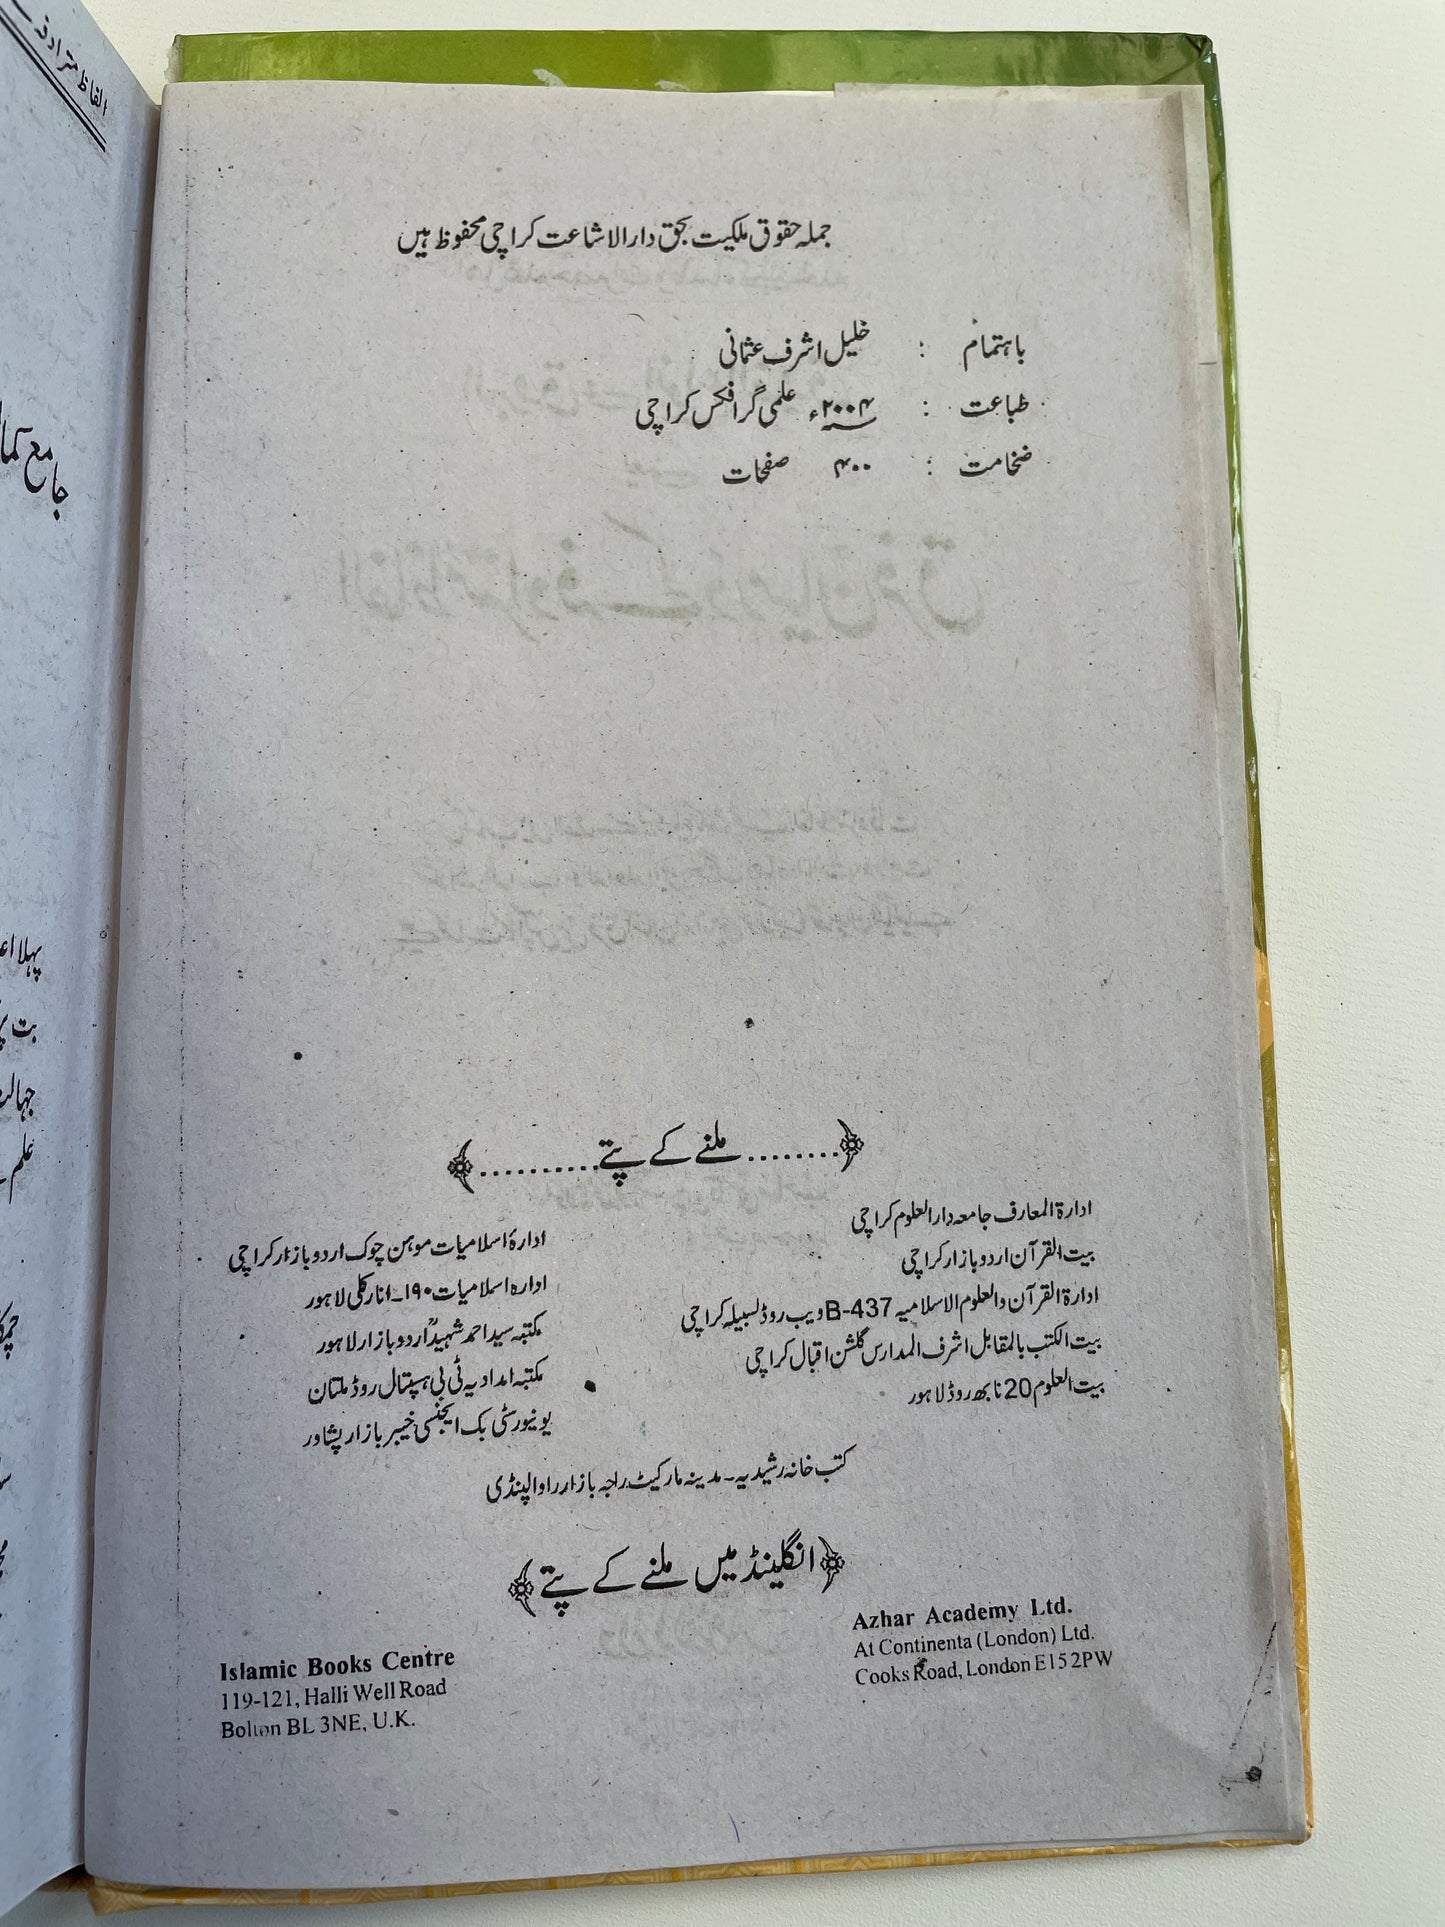 الفاظ مترادف
جملہ حقوق ملکیت بحق دارالاشاعت کراچی محفوظ ہیں
باہتمام : خلیل اشرف عثمانی
طباعت : ۲۰۰۴ء علمی گرافکس کراچی
ضخامت : ۴۰۰ صفحات
﴿........ملنے کے پتے..........﴾
ادارۃ المعارف جامعہ دارالعلوم کراچی
بیت القرآن اردو بازار کراچی
ادارۃ القرآن والعلوم الاسلامیہ 437-B ویب روڈ لسبیلہ کراچی
بیت الکتب بالمقابل اشرف المدارس گلشن اقبال کراچی
بیت العلوم 20 نابھ روڈ لاہور
ادارۂ اسلامیات موہن چوک اردو بازار کراچی
ادارہ اسلامیات ۱۹۰۔انارکلی لاہور
مکتبہ سید احمد شہیدؒ اردو بازار لاہور
مکتبہ امدادیہ ٹی بی ہسپتال روڈ ملتان
یونیورسٹی بک ایجنسی خیبر بازار پشاور
کتب خانہ رشیدیہ۔ مدینہ مارکیٹ راجہ بازار راولپنڈی
﴿انگلینڈ میں ملنے کے پتے﴾
Islamic Books Centre
119-121, Halli Well Road
Bolton BL 3NE, U.K.
Azhar Academy Ltd.
At Continenta (London) Ltd.
Cooks Road, London E15 2PW